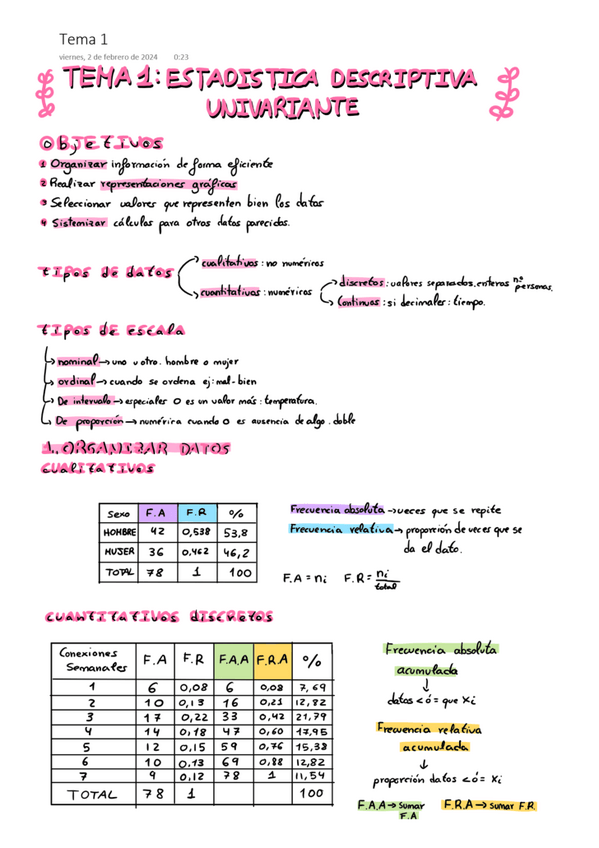 Tema 1
viernes, 2 de febrero de 2024 0:23
TEMA 1: ESTADISTICA DESCRIPTIVA
UNIVARIANTE
objetivos
1 Organizar información de forma eficiente
2 Realizar representaciones gráficas
3 Seleccionar valores que representen bien los datos
4 Sistemizar cálculos para otros datos parecidos.
TIPOS DE datos
cualitativos: no numéricos
cuantitativos: numéricos
discretos: valores separados, enteros nº personas.
Continuos: si decimales: tiempo.
TIPOS de escala
nominal → uno u otro. hombre o mujer
ordinal → cuando se ordena ej: mal-bien
De intervalo → especiales 0 es un valor más: temperatura.
De proporción → numérica cuando 0 es ausencia de algo. doble
1. ORGANIZAR DATOS
CUALITATIVOS
Sexo F.A F.R %
HOMBRE 42 0,538 53,8
MUJER 36 0,462 46,2
TOTAL 78 1 100
Frecuencia absoluta → veces que se repite
Frecuencia relativa → proporción de veces que se
da el dato.
F.A = ni F.R = ni/total
CUANTITATIVOS discretos
Conexiones Semanales F.A F.R F.A.A F.R.A %
1 6 0,08 6 0,08 7,69
2 10 0,13 16 0,21 12,82
3 17 0,22 33 0,42 21,79
4 14 0,18 47 0,60 17,95
5 12 0,15 59 0,76 15,38
6 10 0.13 69 0,88 12,82
7 9 0,12 78 1 11,54
TOTAL 78 1 100
Frecuencia absoluta
acumulada
↓
datos < ó = que xi
Frecuencia relativa
acumulada
↓
proporción datos < ó = xi
F.A.A → sumar F.A
F.R.A → sumar F.R